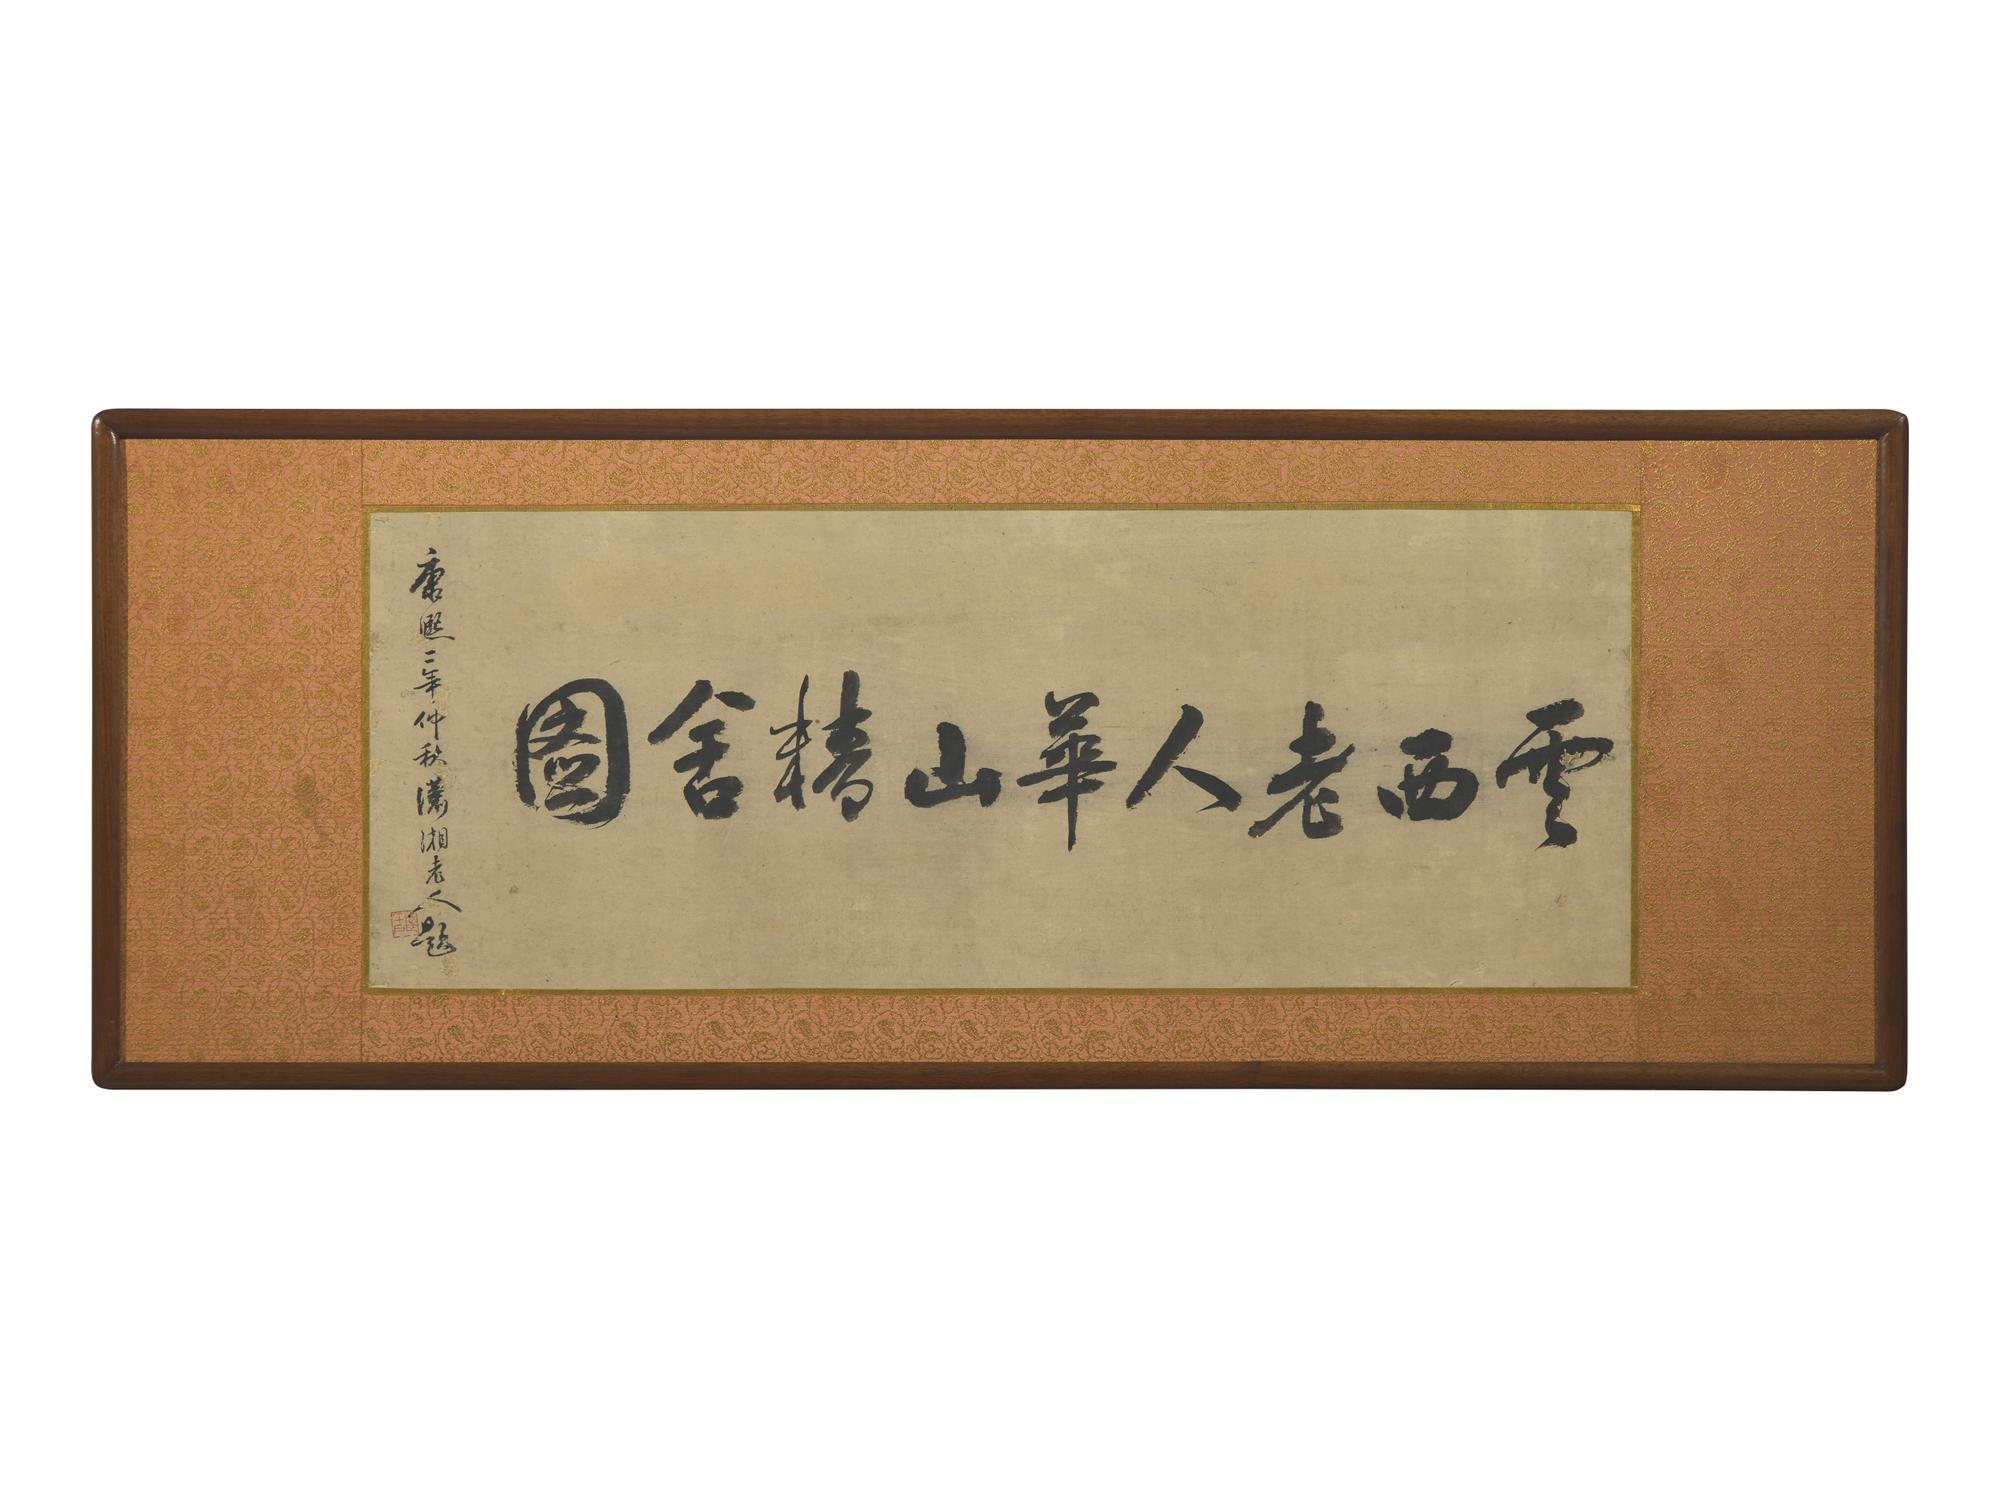 雲西老人華山精舍圖
康熙二年仲秋瀟湘老人題